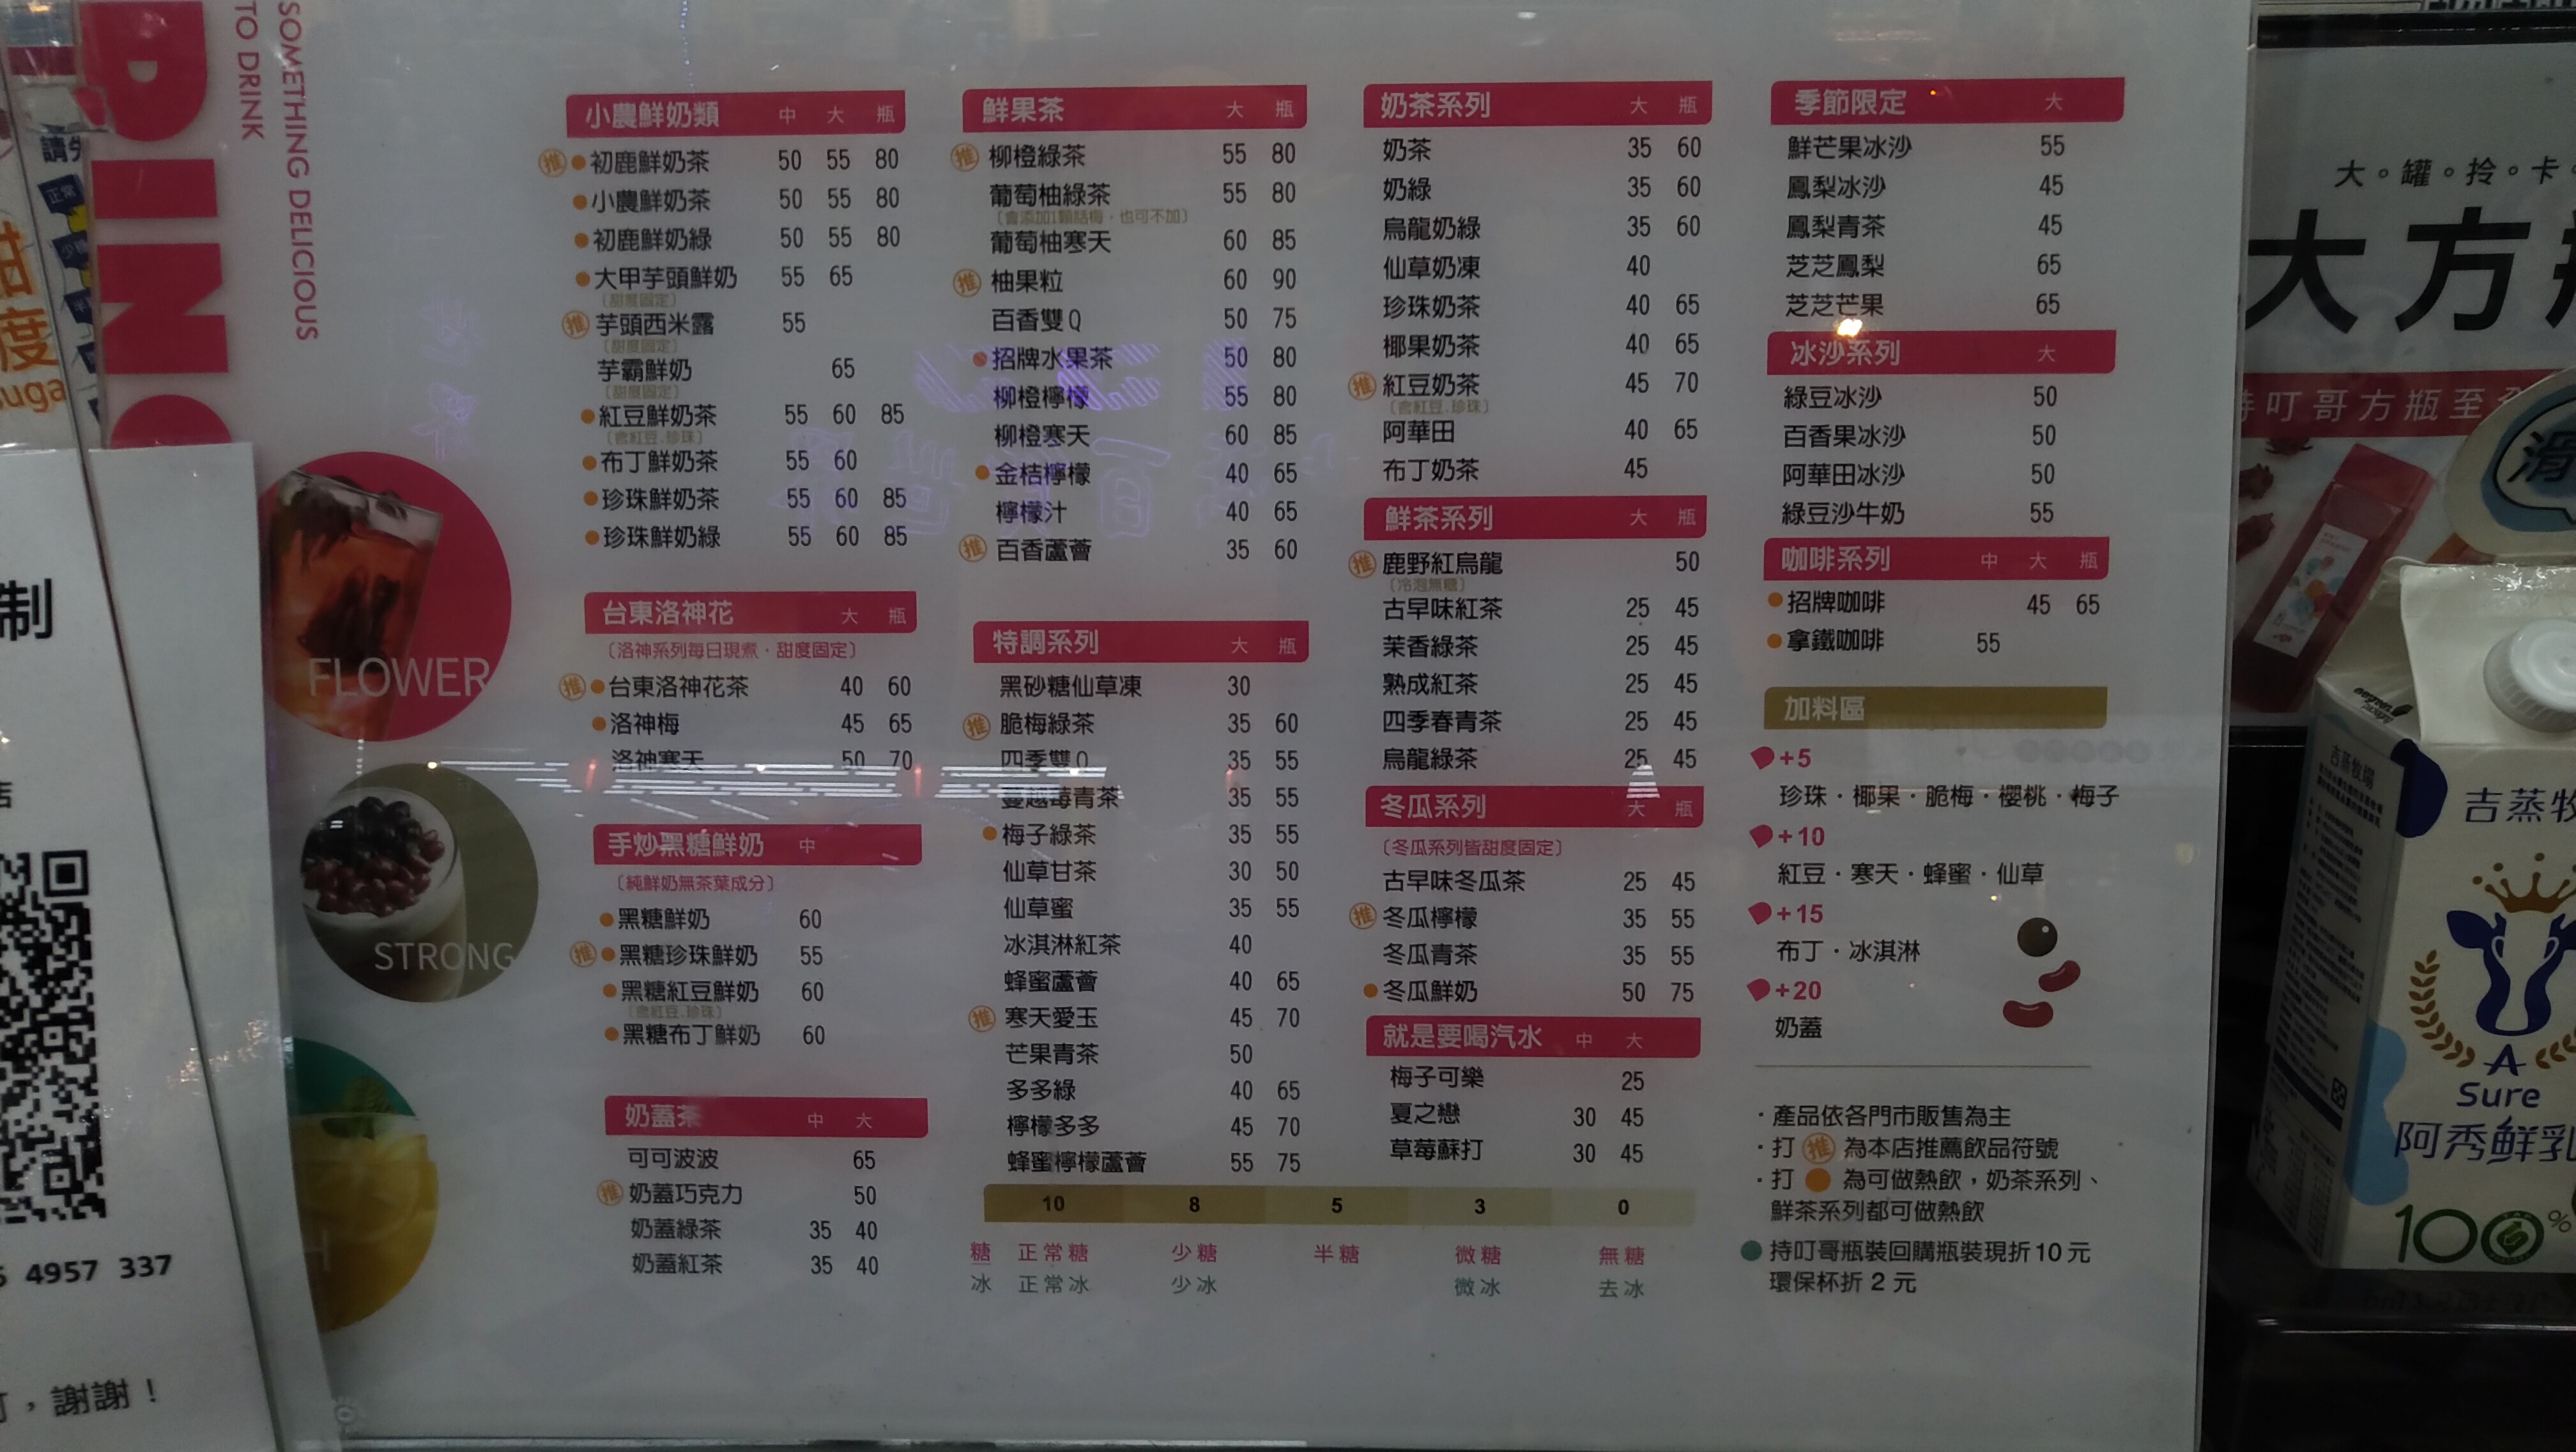 SOMETHING DELICIOUS
TO DRINK
DING
小農鮮奶類 中 大 瓶
推 初鹿鮮奶茶 50 55 80
小農鮮奶茶 50 55 80
初鹿鮮奶綠 50 55 80
大甲芋頭鮮奶 55 65
(甜度固定)
推 芋頭西米露 55
(甜度固定)
芋霸鮮奶 65
(甜度固定)
紅豆鮮奶茶 55 60 85
(會紅豆.珍珠)
布丁鮮奶茶 55 60
珍珠鮮奶茶 55 60 85
珍珠鮮奶綠 55 60 85
台東洛神花 大 瓶
(洛神系列每日現煮·甜度固定)
推 台東洛神花茶 40 60
洛神梅 45 65
洛神寒天 50 70
手炒黑糖鮮奶 中
(純鮮奶無茶葉成分)
黑糖鮮奶 60
推 黑糖珍珠鮮奶 55
黑糖紅豆鮮奶 60
(會紅豆.珍珠)
黑糖布丁鮮奶 60
奶蓋茶 中 大
可可波波 65
推 奶蓋巧克力 50
奶蓋綠茶 35 40
奶蓋紅茶 35 40
鮮果茶 大 瓶
推 柳橙綠茶 55 80
葡萄柚綠茶 55 80
(會添加1顆話梅,也可不加)
葡萄柚寒天 60 85
推 柚果粒 60 90
百香雙Q 50 75
招牌水果茶 50 80
柳橙檸檬 55 80
柳橙寒天 60 85
金桔檸檬 40 65
檸檬汁 40 65
推 百香蘆薈 35 60
特調系列 大 瓶
黑砂糖仙草凍 30
推 脆梅綠茶 35 60
四季雙Q 35 55
蔓越莓青茶 35 55
梅子綠茶 35 55
仙草甘茶 30 50
仙草蜜 35 55
冰淇淋紅茶 40
蜂蜜蘆薈 40 65
推 寒天愛玉 45 70
芒果青茶 50
多多綠 40 65
檸檬多多 45 70
蜂蜜檸檬蘆薈 55 75
奶茶系列 大 瓶
奶茶 35 60
奶綠 35 60
烏龍奶綠 35 60
仙草奶凍 40
珍珠奶茶 40 65
椰果奶茶 40 65
推 紅豆奶茶 45 70
(會紅豆.珍珠)
阿華田 40 65
布丁奶茶 45
鮮茶系列 大 瓶
推 鹿野紅烏龍 50
(冷泡無糖)
古早味紅茶 25 45
茉香綠茶 25 45
熟成紅茶 25 45
四季春青茶 25 45
烏龍綠茶 25 45
冬瓜系列 大 瓶
(冬瓜系列皆甜度固定)
古早味冬瓜茶 25 45
推 冬瓜檸檬 35 55
冬瓜青茶 35 55
冬瓜鮮奶 50 75
就是要喝汽水 中 大
梅子可樂 25
夏之戀 30 45
草莓蘇打 30 45
10 8 5 3 0
糖 正常糖 少糖 半糖 微糖 無糖
冰 正常冰 少冰 微冰 去冰
季節限定 大
鮮芒果冰沙 55
鳳梨冰沙 45
鳳梨青茶 45
芝芝鳳梨 65
芝芝芒果 65
冰沙系列 大
綠豆冰沙 50
百香果冰沙 50
阿華田冰沙 50
綠豆沙牛奶 55
咖啡系列 中 大 瓶
招牌咖啡 45 65
拿鐵咖啡 55
加料區
+5
珍珠·椰果·脆梅·櫻桃·梅子
+10
紅豆·寒天·蜂蜜·仙草
+15
布丁·冰淇淋
+20
奶蓋
·產品依各門市販售為主
·打 推 為本店推薦飲品符號
·打 為可做熱飲,奶茶系列、
鮮茶系列都可做熱飲
持叮哥瓶裝回購瓶裝現折10元
環保杯折 2 元
FLOWER
STRONG
制
店
4957 337
,謝謝!
甜
度
正常
大。罐。拎。卡。
大方
叮哥方瓶至
滑
吉蒸牧場
吉蒸牧
A
Sure
阿秀鮮乳
100%